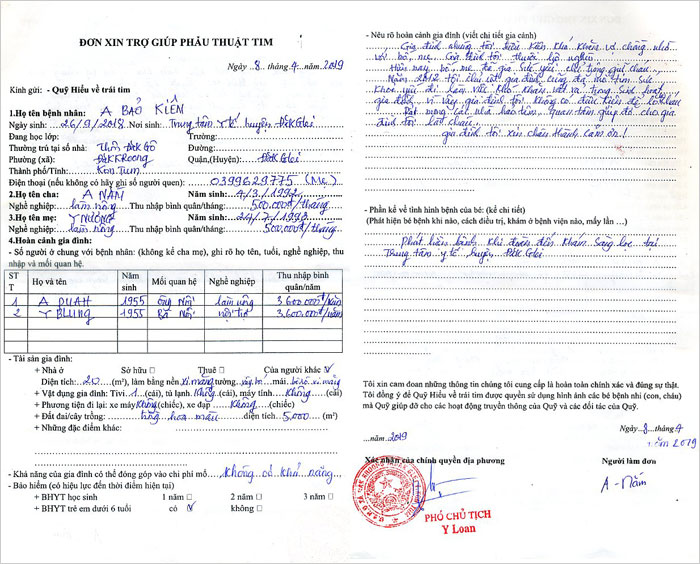 ĐƠN XIN TRỢ GIÚP PHẪU THUẬT TIM
Ngày 8 tháng 4 năm 2019
Kính gửi: - Quỹ Hiểu về trái tim
1.Họ tên bệnh nhân: A BẢO KIÊN
Ngày sinh: 26/9/2018 Nơi sinh: Trung tâm Y tế huyện ĐăK Glei
Đang học lớp: Trường:
Thường trú tại số nhà: Thôn Đăk Gô Đường:
Phường (xã): ĐăKKRoong Quận,(Huyện): ĐăK Glei
Thành phố/Tỉnh: Kon Tum
Điện thoại (nếu không có hãy ghi số người quen): 0399629775 (Mẹ)
2.Họ tên cha: A NĂM Năm sinh: 4/3/1992
Nghề nghiệp: làm nông Thu nhập bình quân/tháng 500.000đ/tháng
3.Họ tên mẹ: Y NƯƠNG Năm sinh:
Nghề nghiệp: làm nông Thu nhập bình quân/tháng 500.000đ/tháng
4.Hoàn cảnh gia đình:
- Số người ở chung với bệnh nhân: (không kể cha mẹ), ghi rõ họ tên, tuổi, nghề nghiệp, thu
nhập và mối quan hệ.
STT Họ và tên Năm sinh Mối quan hệ Nghề nghiệp Thu nhập bình quân/năm
1 A DUAH 1955 Ông Nội làm nông 3.600.000đ/năm
2 Y BLUNG 1955 Bà Nội nội trợ 3.600.000đ/năm
- Tài sản gia đình:
+ Nhà ở Sở hữu □ Thuê □ Của người khác ☑
Diện tích: 20 (m²), làm bằng nền xi măng tường mái
+ Vật dụng gia đình: Tivi 1 (cái), tủ lạnh Không (cái), máy tính Không (cái)
+ Phương tiện đi lại: xe máy Không (chiếc), xe đạp Không (chiếc)
+ Đất đai/cây trồng: trồng hoa màu diện tích 5.000 (m²)
+ Những đặc điểm khác:
- Khả năng của gia đình có thể đóng góp vào chi phí mổ Không có khả năng
- Bảo hiểm (có hiệu lực đến thời điểm hiện tại)
+ BHYT học sinh 1 năm □ 2 năm □ 3 năm □
+ BHYT trẻ em dưới 6 tuổi có ☑ không □
- Nêu rõ hoàn cảnh gia đình (viết chi tiết gia cảnh)
Gia đình chúng tôi điều kiện khó khăn vợ chồng nhỏ
với bố, mẹ. Gia đình tôi thuộc hộ nghèo.
Hiện nay bố, mẹ đã già sức yếu
Năm 2012 tôi
khỏe yếu đi làm việc khó khăn vất vả trong sinh hoạt
gia đình vì vậy gia đình tôi không có điều kiện để lo
Rất mong các nhà hảo tâm, quan tâm giúp đỡ cho gia
đình tôi
gia đình tôi xin chân thành cảm ơn!
- Phần kể về tình hình bệnh của bé: (kể chi tiết)
(Phát hiện bệnh khi nào, cách điều trị, khám ở bệnh viện nào, mấy lần …)
Phát hiện bệnh khi đến khám sàng lọc tại
Trung tâm y tế huyện ĐăK Glei
Tôi xin cam đoan những thông tin chúng tôi cung cấp là hoàn toàn chính xác và đúng sự thật.
Tôi đồng ý để Quỹ Hiểu về trái tim được quyền sử dụng hình ảnh các bé bệnh nhi (con, cháu)
mà Quỹ giúp đỡ cho các hoạt động truyền thông của Quỹ và các đối tác của Quỹ.
Ngày 8 tháng 4
năm 2019
...năm 2019
Xác nhận của chính quyền địa phương Người làm đơn
A - Năm
PHÓ CHỦ TỊCH
Y Loan